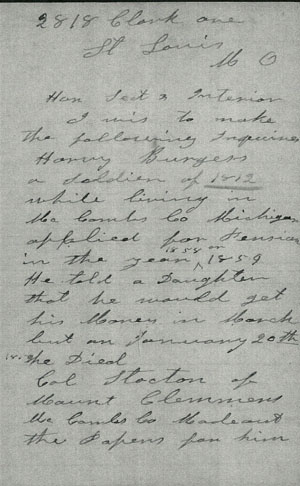 2818 Clark ave
St Louis
M O
Hon Sect & Interior
I wis to make
the following Inquiries
Harvy Burgess
a soldier of 1812
while living in
Mc Combs Co Michigan
applied for Pension
in the year 1858 or 1859
He told a Daughter
that he would get
his Money in March
but on January 20th
he Died
Col Stocton of
Maunt Clemmens
Mc Combs Co Made out
the Papers for him